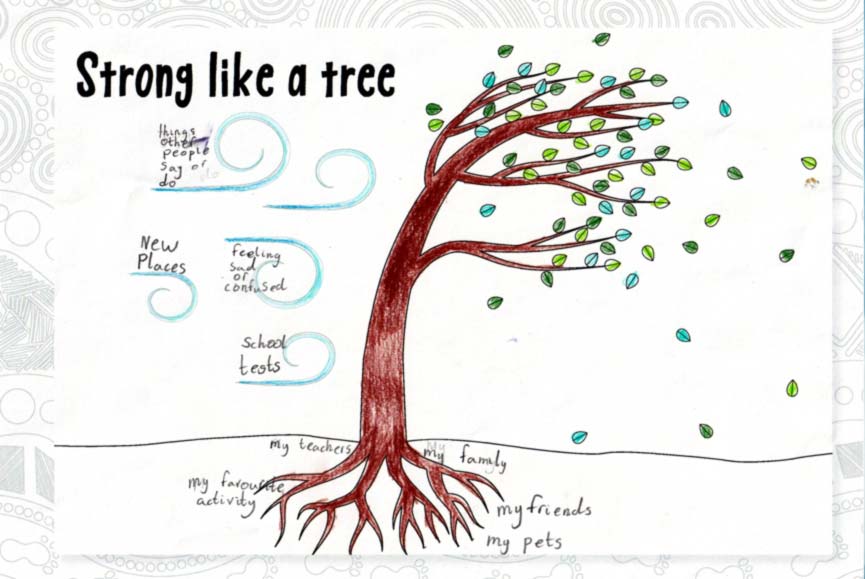 Strong like a tree
things
other
people
say or
do
New
Places
feeling
sad
or
confused
School
tests
my teachers
my family
my favourite
activity
my friends
my pets